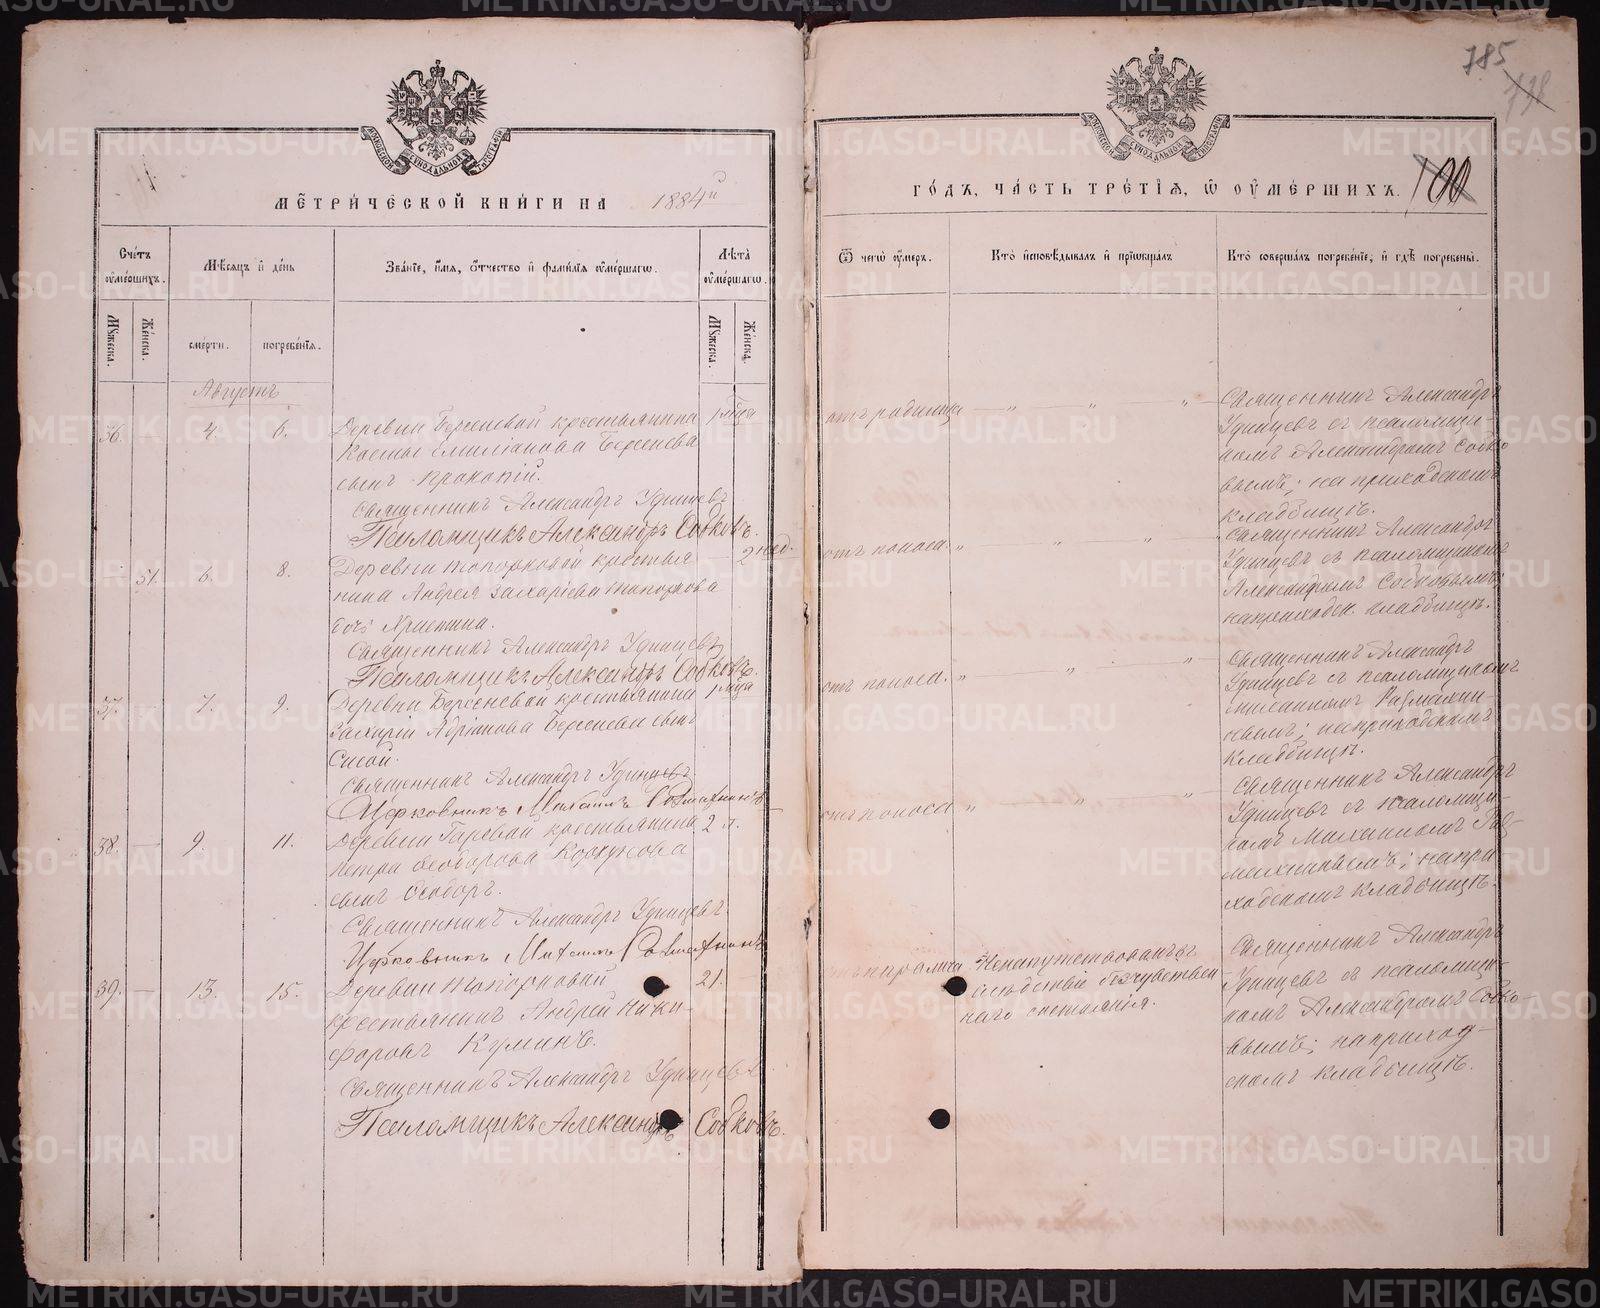 785
778
МОСКОВСКОЙ СѴНОДАЛЬНОЙ ТИПОГРАФІИ
МЕТРИЧЕСКОЙ КНИГИ НА 1884й
Счетъ оумершихъ.
Мѣсяцъ и день
Званіе, имя, отчество и фамилія оумершагѡ.
Лѣта оумершагѡ.
Мужеска.
Женска.
смерти.
погребенія.
Мужеска.
Женска.
Августъ
36.
4.
6.
Деревни Береневой крестьянина
1 мца
Емиліанова Беренева
сынъ Прокопій.
Священникъ Александръ Удинцевъ
Псаломщикъ Александръ Собковъ.
31.
6.
8.
Деревни Топорковой крестья
2 нед.
нина Андрея Захаріева Топоркова
дочь Христина.
Священникъ Александръ Удинцевъ
Псаломщикъ Александръ Собковъ.
37.
7.
9.
Деревни Береневой крестьянина
1 мца
Захарій Адріанова Беренева сынъ
Сисой.
Священникъ Александръ Удинцевъ
Церковникъ Михаилъ
38.
9.
11.
Деревни Гаревой крестьянина
2 л.
Петра Ѳеодорова Коркунова
сынъ Ѳеодоръ.
Священникъ Александръ Удинцевъ.
Церковникъ Михаилъ
39.
13.
15.
Деревни Топорковой
21.
крестьянинъ Андрей Ники-
форовъ Куминъ.
Священникъ Александръ Удинцевъ
Псаломщикъ Александръ Собковъ.
МОСКОВСКОЙ СѴНОДАЛЬНОЙ ТИПОГРАФІИ
ГОДЪ, ЧАСТЬ ТРЕТІЯ, Ѿ ОУМЕРШИХЪ.
100
Ѿ чегѡ оумеръ.
Кто исповѣдывалъ и пріѡбщалъ
Кто совершалъ погребеніе, и гдѣ погребены.
отъ родимца
Священникъ Александръ
Удинцевъ съ псаломщи-
комъ Александромъ Собко
вымъ; на приходскомъ
кладбищѣ.
отъ поноса.
Священникъ Александръ
Удинцевъ съ псаломщикомъ
Александромъ Собковымъ;
на приходск. кладбищѣ.
отъ поноса.
Священникъ Александръ
Удинцевъ съ псаломщикомъ
вымъ; на приходскомъ
кладбищѣ.
отъ поноса
Священникъ Александръ
Удинцевъ съ псаломщи-
комъ Михаиломъ
на при
ходскомъ кладбищѣ.
отъ паралича
Ненапутствованъ
вслѣдствіе безчувствен
наго состоянія.
Священникъ Александръ
Удинцевъ съ псаломщи-
комъ Александромъ Собко-
вымъ; на приход-
скомъ кладбищѣ.
METRIKI.GASO-URAL.RU